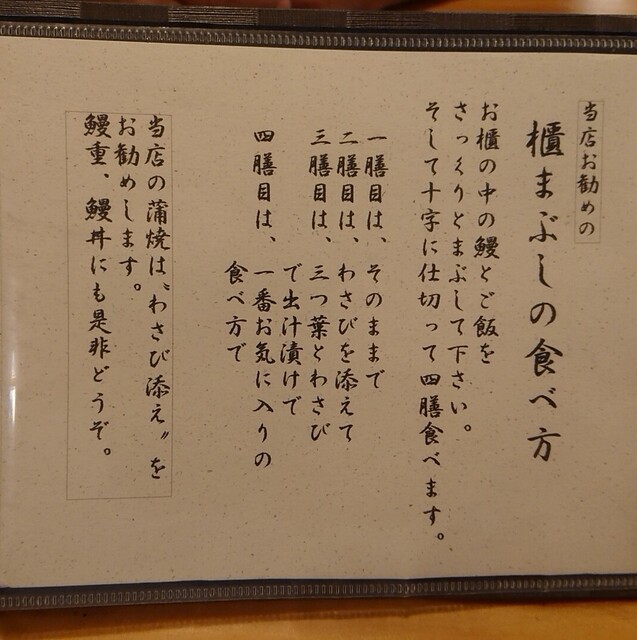 当店お勧めの
櫃まぶしの食べ方
お櫃の中の鰻とご飯を
さっくりとまぶして下さい。
そして十字に仕切って四膳食べます。
一膳目は、そのままで
二膳目は、わさびを添えて
三膳目は、三つ葉とわさび
で出汁漬けで
四膳目は、一番お気に入りの
食べ方で
当店の蒲焼は〝わさび添え〟を
お勧めします。
鰻重、鰻丼にも是非どうぞ。